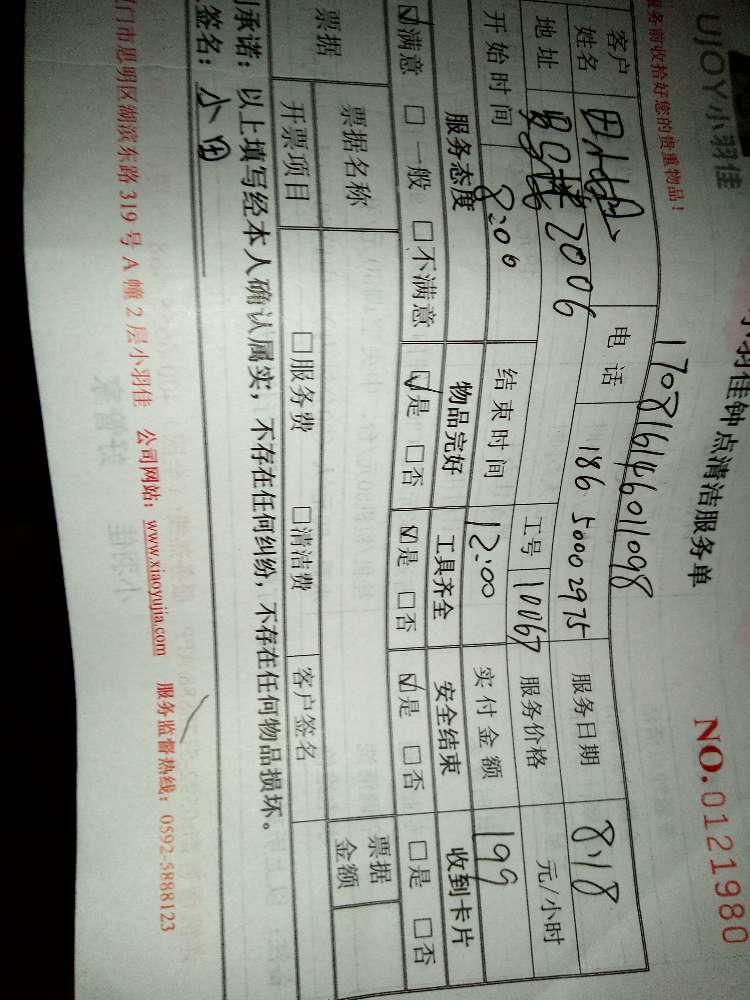 UJOY小羽佳
小羽佳钟点清洁服务单
NO.0121980
服务前收拾好您的贵重物品！
170816146011098
客户姓名 电话 186 5000 2975 服务日期 8.18
地址 2006 工号 10067 服务价格 元/小时
开始时间 8:00 结束时间 12:00 实付金额 199
服务态度 物品完好 工具齐全 安全结束 收到卡片
☑满意 □一般 □不满意 ☑是 □否 ☑是 □否 ☑是 □否 □是 □否
票据 票据名称 票据金额
开票项目 □服务费 □清洁费 客户签名
承诺：以上填写经本人确认属实，不存在任何纠纷，不存在任何物品损坏。
签名：小田
门市思明区湖滨东路319号A幢2层小羽佳 公司网站：www.xiaoyujia.com 服务监督热线：0592-5888123